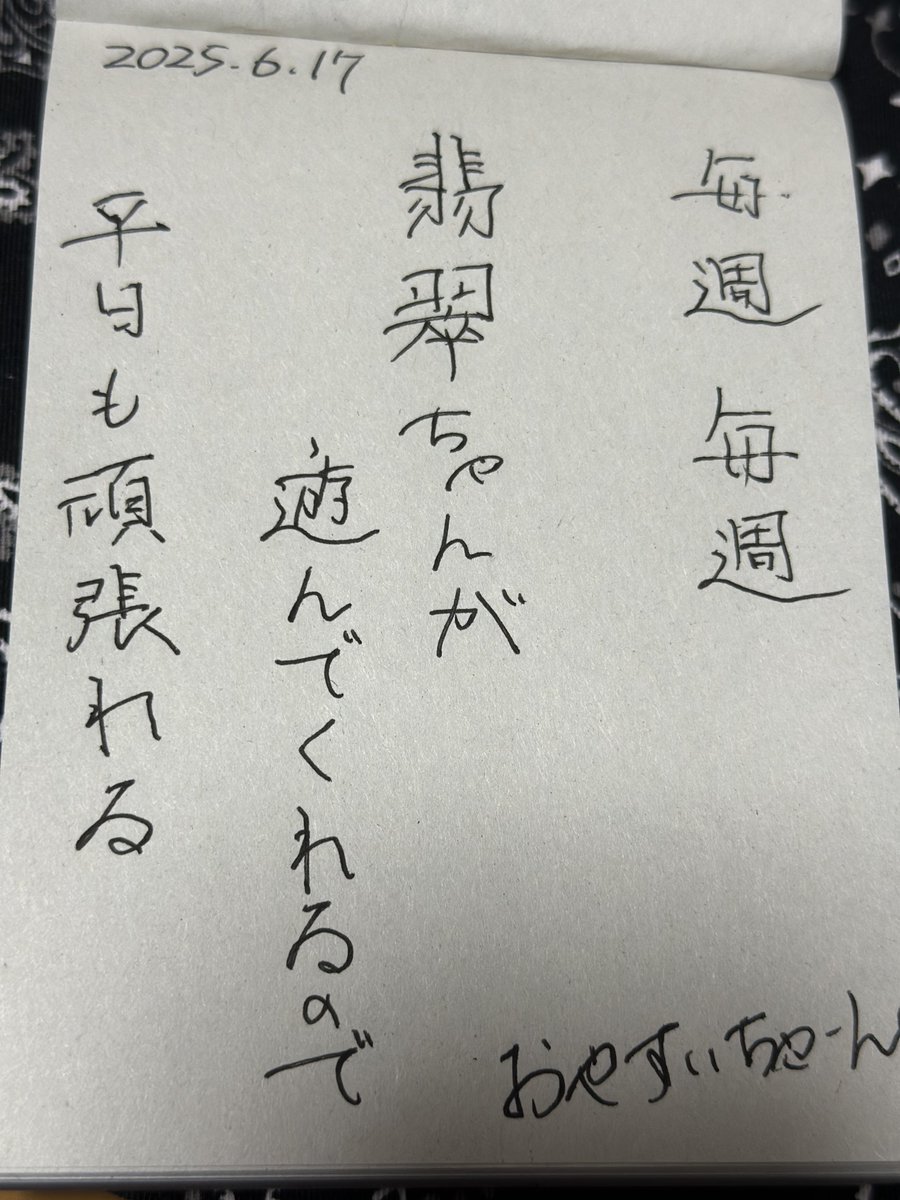 2025.6.17
毎週毎週
翡翠ちゃんが
遊んでくれるので
平日も頑張れる
おやすいちゃーん